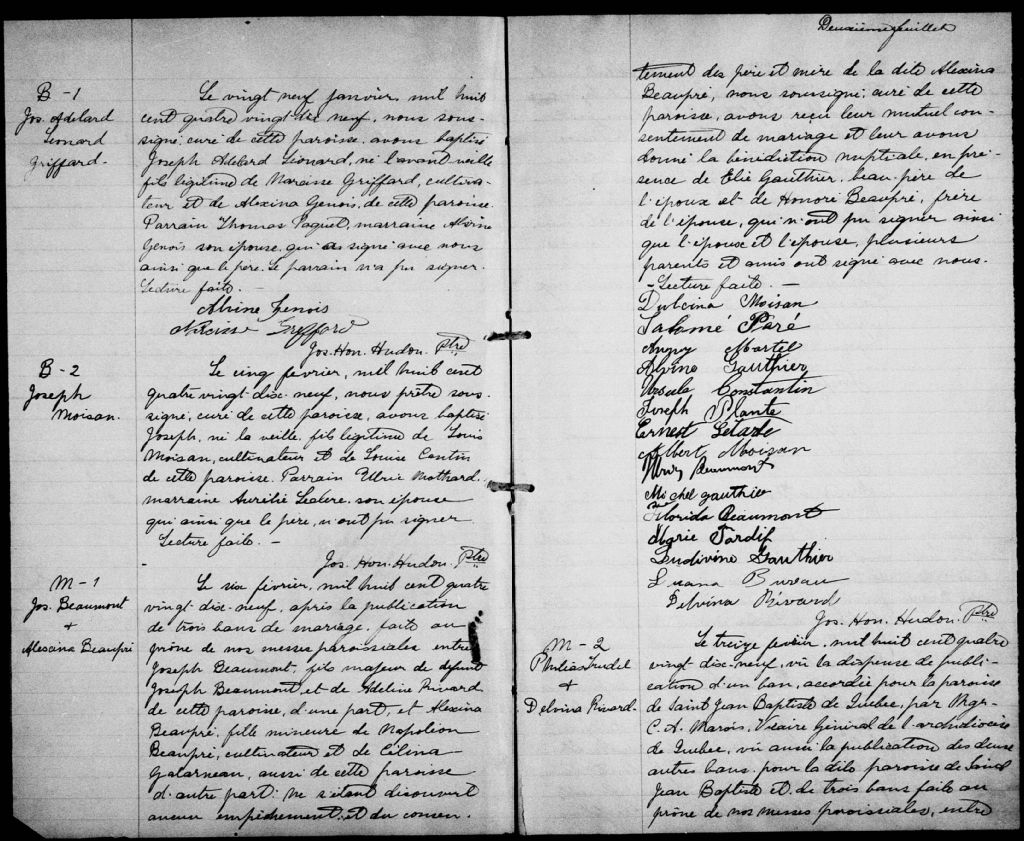 B-1
Jos. Adelard
Léonard
Griffard.
Le vingt neuf janvier, mil huit
cent quatre vingt-dix neuf, nous sous-
signé, curé de cette paroisse, avons baptisé
Joseph Adelard Léonard, né l'avant veille
fils légitime de Narcisse Griffard, cultiva-
teur et de Alexina Genois, de cette paroisse.
Parrain Thomas Paquet, marraine Alvine
Genois son épouse, qui a signé avec nous
ainsi que le père. Le parrain n'a pu signer.
Lecture faite. -
Alvine Genois
Narcisse Griffard
Jos. Hon. Hudon. Ptre
B-2
Joseph
Moisan.
Le cinq février, mil huit cent
quatre vingt-dix-neuf, nous prêtre sous-
signé, curé de cette paroisse, avons baptisé
Joseph, né la veille, fils légitime de Louis
Moisan, cultivateur et de Louise Cantin
de cette paroisse. Parrain Ulric Mothard.
marraine Aurélie Leclerc, son épouse
qui ainsi que le père, n'ont pu signer
Lecture faite. -
Jos. Hon. Hudon. Ptre
M-1
Jos. Beaumont
+
Alexina Beaupré
Le six février, mil huit cent quatre
vingt-dix-neuf, après la publication
de trois bans de mariage, faite au
prône de nos messes paroissiales entre
Joseph Beaumont, fils majeur de défunt
Joseph Beaumont, et de Adeline Rivard
de cette paroisse, d'une part, et Alexina
Beaupré, fille mineure de Napoléon
Beaupré, cultivateur et de Célina
Galarneau, aussi de cette paroisse
d'autre part: ne s'étant découvert
aucun empêchement, et du consen-
Deuxième feuillet
tement des père et mère de la dite Alexina
Beaupré, nous soussigné, curé de cette
paroisse, avons reçu leur mutuel con-
sentement de mariage et leur avons
donné la bénédiction nuptiale, en pré-
sence de Elie Gauthier, beau-père de
l'époux et de Honoré Beaupré, frère
de l'épouse, qui n'ont pu signer ainsi
que l'époux et l'épouse, plusieurs
parents et amis ont signé avec nous.
- Lecture faite. -
Dulcina Moisan
Salomé Paré
Martel
Alvine Gauthier
Ursule Constantin
Joseph Plante
Ernest
Albert Moisan
Beaumont
Michel Gauthier
Florida Beaumont
Marie Tardif
Ludivine Gauthier
Luana Bureau
Delvina Rivard
Jos. Hon. Hudon. Ptre
M-2
Philéas Trudel
+
Delvina Rivard.
Le treize février, mil huit cent quatre
vingt-dix-neuf, vu la dispense de publi-
cation d'un ban, accordée pour la paroisse
de Saint Jean Baptiste de Québec, par Mgr.
C. A. Marois, Vicaire Général de l'archidiocèse
de Québec, vu aussi la publication des deux
autres bans, pour la dite paroisse de Saint
Jean Baptiste et de trois bans faite au
prône de nos messes paroissiales, entre